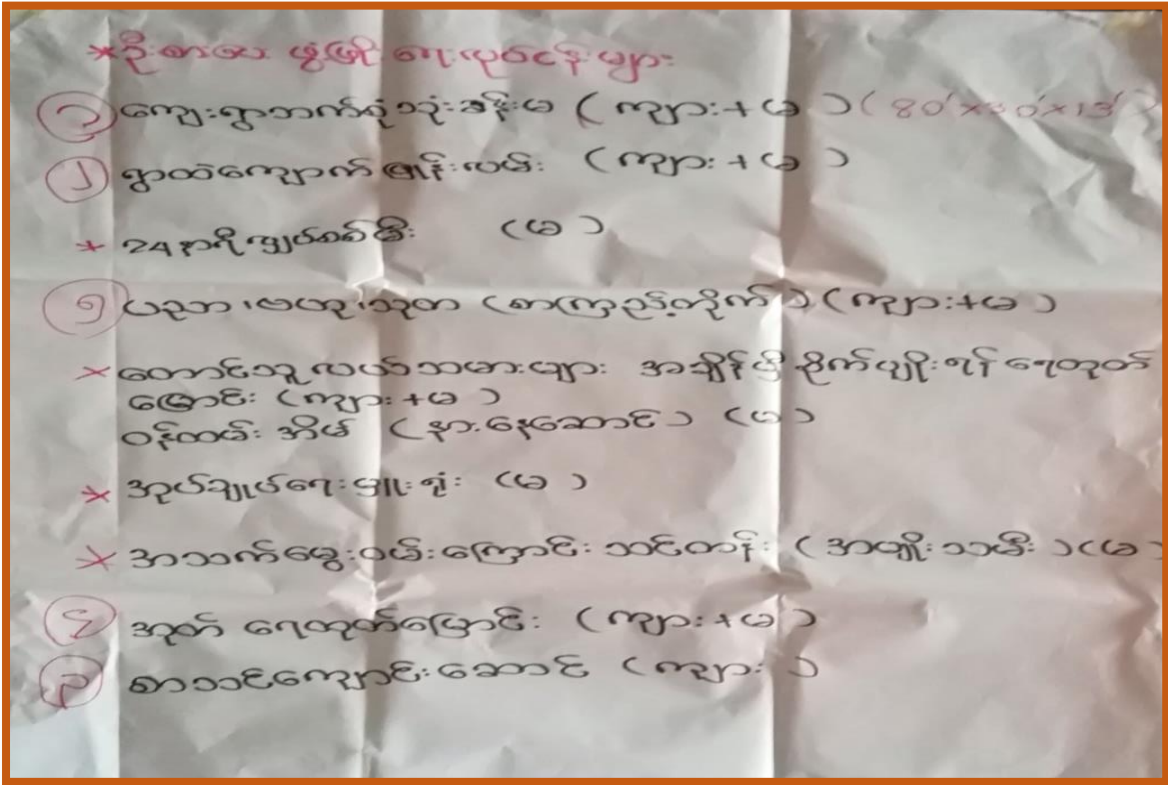 *ဦးစားပေး ဖွံ့ဖြိုးရေးလုပ်ငန်းများ
၁ ကျေးရွာဘက်စုံသုံးခန်းမ (ကျား+မ) (80'x30'x13')
၂ ရွာထဲကျောက်ဖြန့်လမ်း (ကျား+မ)
* 24 နာရီလျှပ်စစ်မီး (မ)
၃ ပညာ၊ဗဟု၊သုတ (စာကြည့်တိုက်) (ကျား+မ)
* တောင်သူလယ်သမားများ အချိန်မှီစိုက်ပျိုးရန် ရေထုတ်
မြောင်း (ကျား+မ)
ဝန်ထမ်း အိမ် (နားနေဆောင်) (မ)
* အုပ်ချုပ်ရေးမှူးရုံး (မ)
* အသက်မွေးဝမ်းကြောင်း သင်တန်း (အမျိုးသမီး) (မ)
၄ အုတ် ရေထုတ်မြောင်း (ကျား+မ)
၅ စာသင်ကျောင်းဆောင် (ကျား)